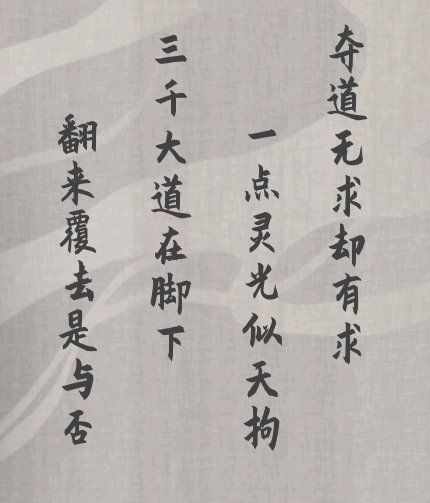 夺道无求却有求
一点灵光似天拘
三千大道在脚下
翻来覆去是与否